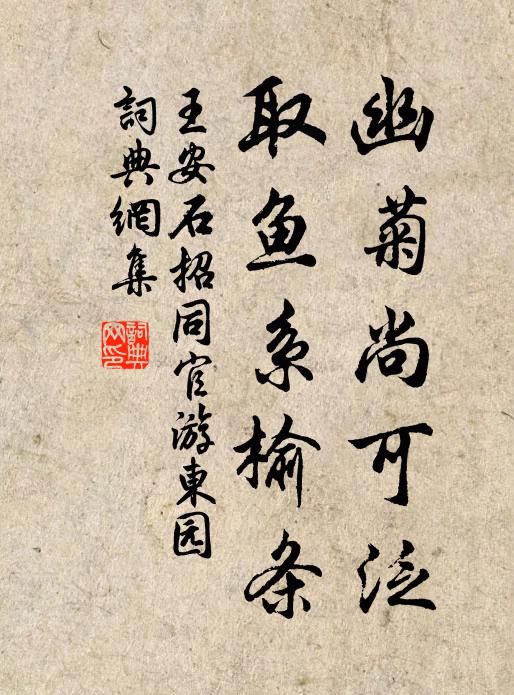 幽菊尚可泛
取鱼系榆条
王安石招同官游東园
詞典網集
詞典网印